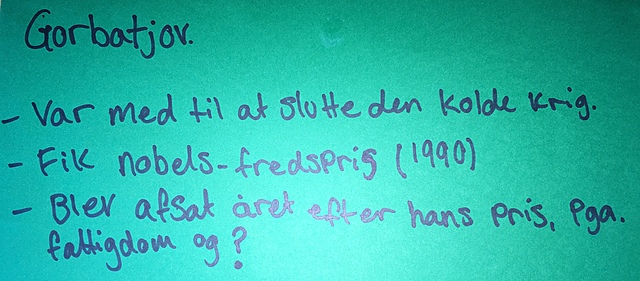 Gorbatjov.
- Var med til at slutte den kolde krig.
- Fik nobels-fredspris (1990)
- Blev afsat året efter hans pris, pga.
fattigdom og ?